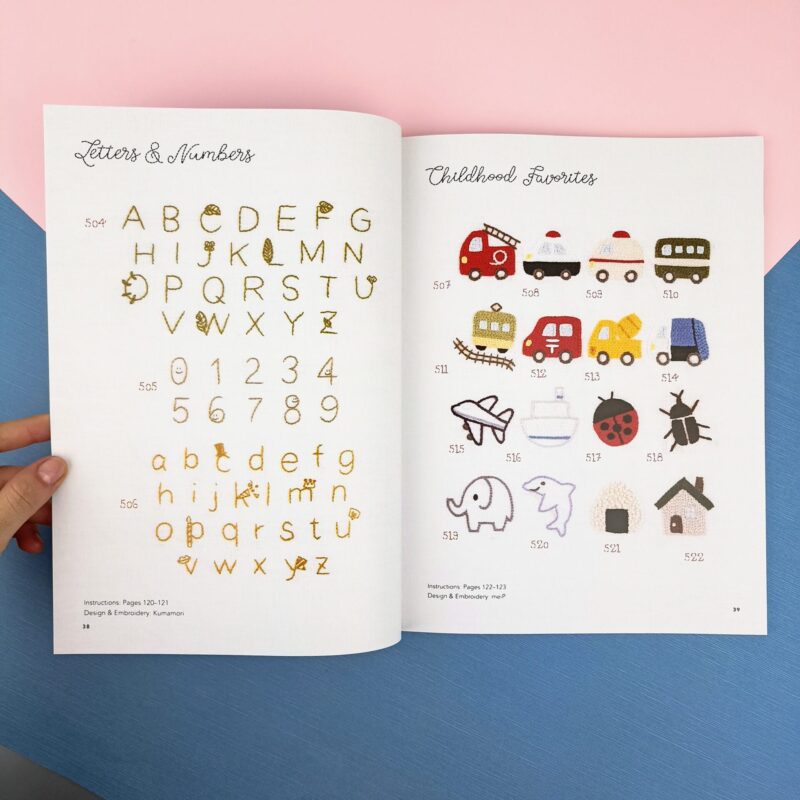 Letters & Numbers
504
A B C D E F G
H I J K L M N
O P Q R S T U
V W X Y Z
505
0 1 2 3 4
5 6 7 8 9
506
a b c d e f g
h i j k l m n
o p q r s t u
v w x y z
Instructions: Pages 120–121
Design & Embroidery: Kumamori
38
Childhood Favorites
507 508 509 510
511 512 513 514
515 516 517 518
519 520 521 522
Instructions: Pages 122–123
Design & Embroidery: me-P
39